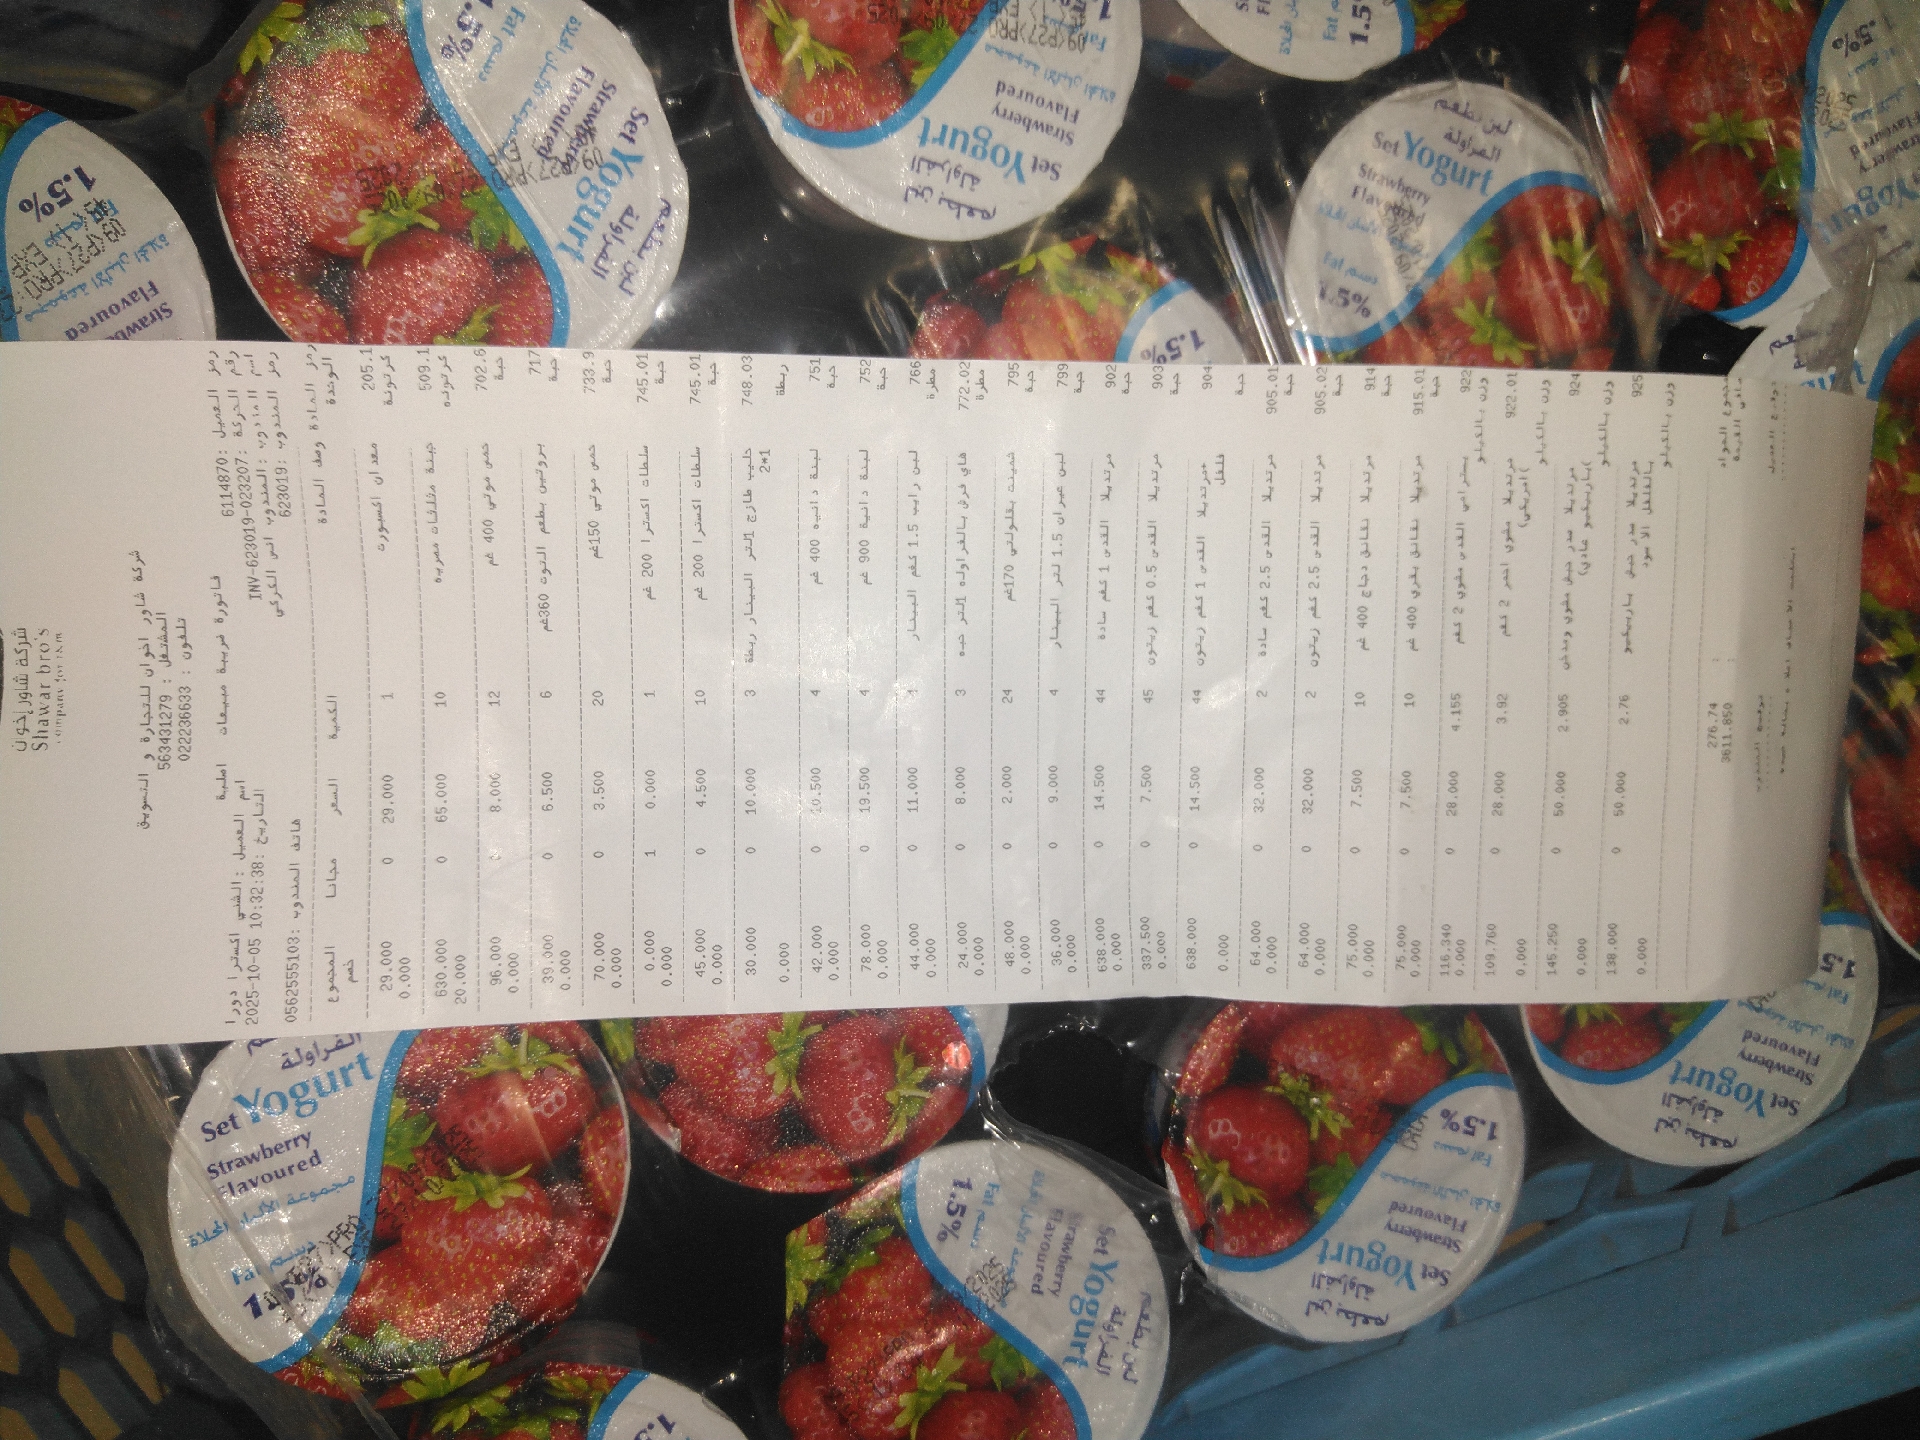 شركة شاور إخوان
Shawar bro's
شركة شاور اخوان للتجارة و التسويق
المشتغل : 563431279
تلفون : 022236633
فاتورة ضريبية مبيعات اصلية
رمز العميل :6114870 اسم العميل :الشني اكسترا دورا
رقم الحركة :INV-623019-023207 التاريخ :2025-10-05 10:32:38
اسم المندوب :المندوب انس الكركي
رمز المندوب :623019 هاتف المندوب :0562555103
رمز المادة وصف المادة الكمية السعر مجانا المجموع
الوحدة خصم
205.1 معدان اكسبورت 1 29.000 0 29.000
كرتونة 0.000
509.1 جبنة مثلثات مصريه 10 65.000 0 630.000
كرتونه 20.000
702.6 حمص موتي 400 غم 12 8.000 0 96.000
حبة 0.000
717 بروتين بطعم التوت 360غم 6 6.500 0 39.000
حبة 0.000
733.9 حمص موتي 150غم 20 3.500 0 70.000
حبة 0.000
745.01 سلطات اكسترا 200 غم 1 0.000 1 0.000
حبة 0.000
745.01 سلطات اكسترا 200 غم 10 4.500 0 45.000
حبة 0.000
748.03 حليب طازج 1لتر البينار ربطة 3 10.000 0 30.000
2*1
ربطة 0.000
751 لبنة دانيه 400 غم 4 10.500 0 42.000
حبة 0.000
752 لبنة دانية 900 غم 4 19.500 0 78.000
حبة 0.000
766 لبن رايب 1.5 كغم البينار 4 11.000 0 44.000
مطرة 0.000
772.02 هاي فرش بالفراوله 1لتر حبه 3 8.000 0 24.000
مطرة 0.000
795 شمينت بقلولتي 170غم 24 2.000 0 48.000
حبة 0.000
799 لبن عيران 1.5 لتر البينار 4 9.000 0 36.000
حبة 0.000
902 مرتديلا القدس 1 كغم سادة 44 14.500 0 638.000
حبة 0.000
903 مرتديلا القدس 0.5 كغم زيتون 45 7.500 0 337.500
حبة 0.000
904 مرتديلا القدس 1 كغم زيتون+ 44 14.500 0 638.000
فلفل
حبة 0.000
905.01 مرتديلا القدس 2.5 كغم سادة 2 32.000 0 64.000
حبة 0.000
905.02 مرتديلا القدس 2.5 كغم زيتون 2 32.000 0 64.000
حبة 0.000
914 مرتديلا نقانق دجاج 400 غم 10 7.500 0 75.000
حبة 0.000
915.01 مرتديلا نقانق بقري 400 غم 10 7.500 0 75.000
حبة 0.000
922 بسترامي القدس مشوي 2 كغم 4.155 28.000 0 116.340
وزن بالكيلو 0.000
922.01 مرتديلا مشوي احمر 2 كغم 3.92 28.000 0 109.760
(امريكي)
وزن بالكيلو 0.000
924 مرتديلا صدر حبش مشوي ومدخن 2.905 50.000 0 145.250
(باربيكيو عادي)
وزن بالكيلو 0.000
925 مرتديلا صدر حبش باربيكيو 2.76 50.000 0 138.000
بالفلفل الاسود
وزن بالكيلو 0.000
مجموع المواد : 276.74
صافي القيمة : 3611.850
توقيع العميل
لبن بطعم
الفراولة
Set Yogurt
Strawberry
Flavoured
Fat دسم
1.5%